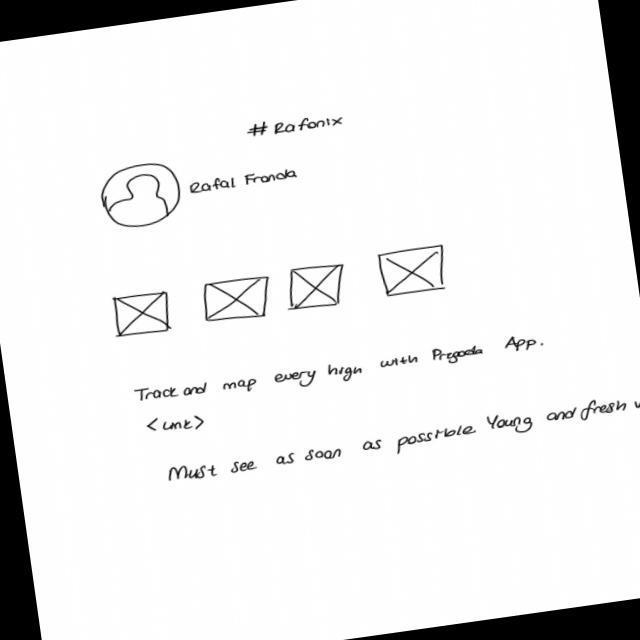 # Rafonix
Rafal Franda
Track and map every high with App.
<LINK>
Must see as soon as possible Young and fresh